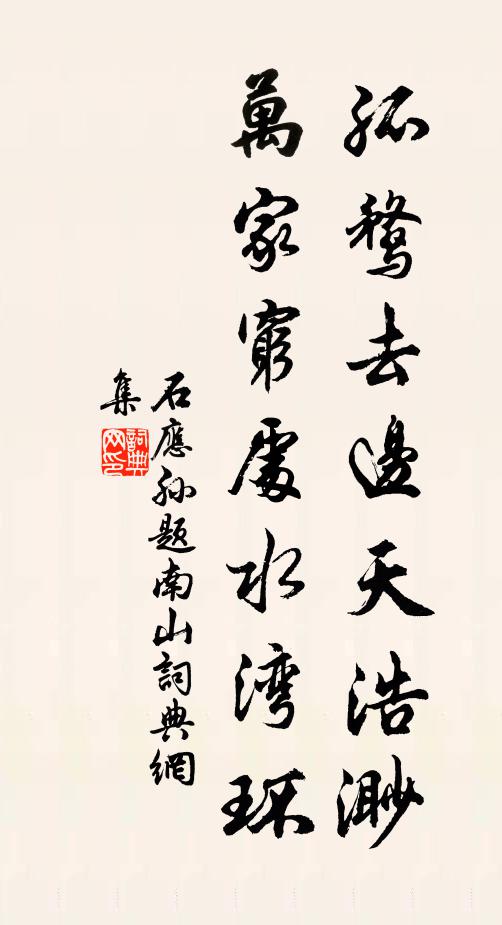 孤鶩去邊天浩渺
萬家窮處水湾环
石應孫題南山詞典網
集
詞典网印